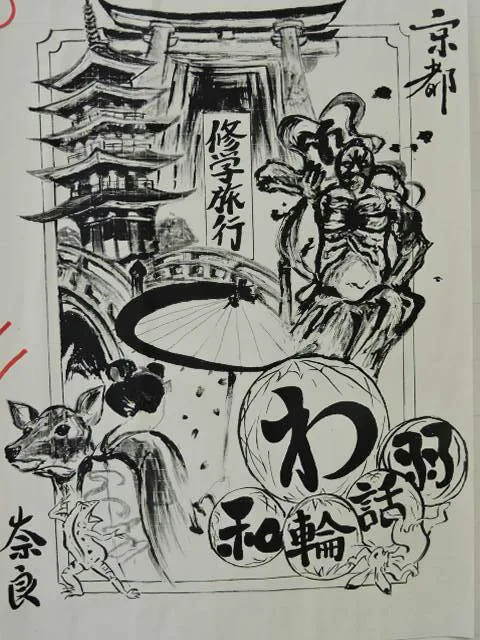 京都
修学旅行
わ
羽
話
輪
和
奈良